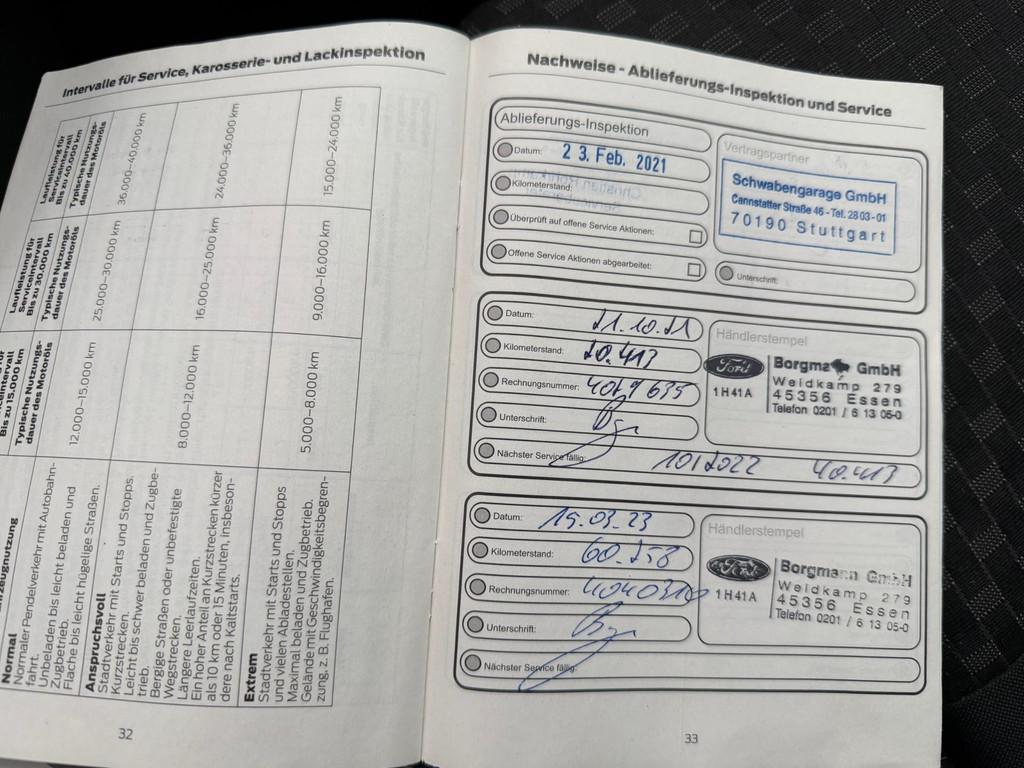 Intervalle für Service, Karosserie- und Lackinspektion
Laufleistung für
Serviceintervall
Bis zu 40.000 km
Typische Nutzungs-
dauer des Motoröls
36.000–40.000 km
24.000–36.000 km
15.000–24.000 km
Laufleistung für
Serviceintervall
Bis zu 30.000 km
Typische Nutzungs-
dauer des Motoröls
25.000–30.000 km
16.000–25.000 km
9.000–16.000 km
Bis zu 15.000 km
Typische Nutzungs-
dauer des Motoröls
12.000–15.000 km
8.000–12.000 km
5.000–8.000 km
Normal
Normaler Pendelverkehr mit Autobahn-
fahrt.
Unbeladen bis leicht beladen und
Zugbetrieb.
Flache bis leicht hügelige Straßen.
Anspruchsvoll
Stadtverkehr mit Starts und Stopps.
Kurzstrecken.
Leicht bis schwer beladen und Zugbe-
trieb.
Bergige Straßen oder unbefestigte
Wegstrecken.
Längere Leerlaufzeiten.
Ein hoher Anteil an Kurzstrecken kürzer
als 10 km oder 15 Minuten, insbeson-
dere nach Kaltstarts.
Extrem
Stadtverkehr mit Starts und Stopps
und vielen Abladestellen.
Maximal beladen und Zugbetrieb.
Gelände mit Geschwindigkeitsbegren-
zung, z. B. Flughafen.
32
Nachweise - Ablieferungs-Inspektion und Service
Ablieferungs-Inspektion
Datum: 23. Feb. 2021
Kilometerstand:
Überprüft auf offene Service Aktionen:
Offene Service Aktionen abgearbeitet:
Vertragspartner
Schwabengarage GmbH
Cannstatter Straße 46 - Tel. 28 03 - 01
70190 Stuttgart
Unterschrift:
Datum: 21.10.21
Kilometerstand: 20.413
Rechnungsnummer: 4019635
Unterschrift:
Nächster Service fällig: 10/2022 40.413
Händlerstempel
Ford
1H41A
Borgmann GmbH
Weidkamp 279
45356 Essen
Telefon 0201 / 6 13 05-0
Datum: 15.03.23
Kilometerstand: 60.258
Rechnungsnummer:
Unterschrift:
Nächster Service fällig:
Händlerstempel
Ford
1H41A
Borgmann GmbH
Weidkamp 279
45356 Essen
Telefon 0201 / 6 13 05-0
33